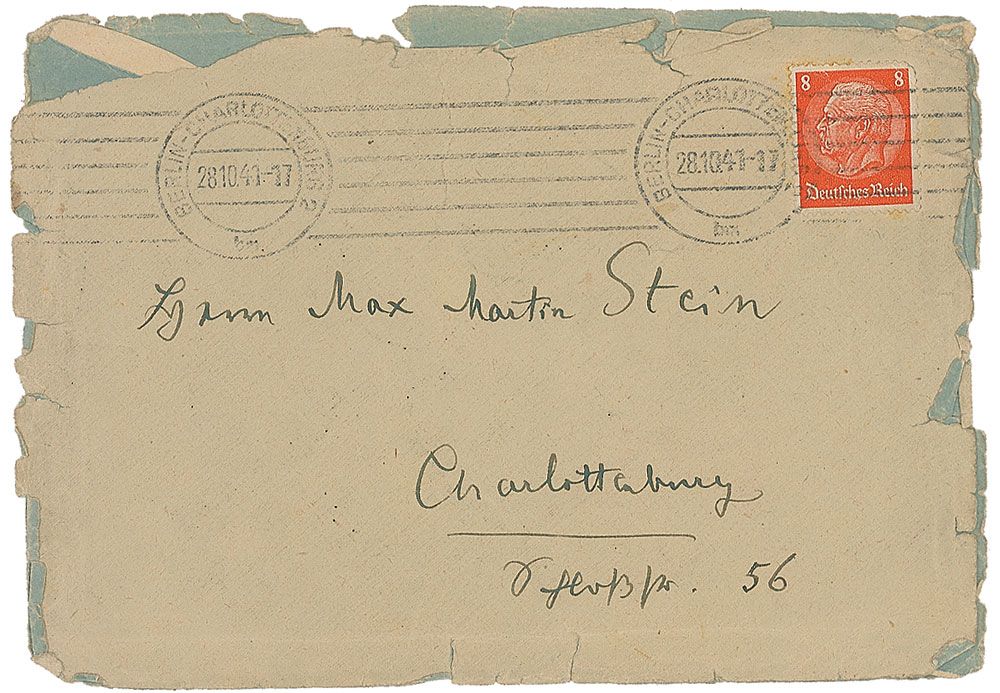 8 8
Deutsches Reich
BERLIN-CHARLOTTENBURG 2
28.10.41.-17
bm
BERLIN-CHARLOTTENBURG
28.10.41-17
bm
Herrn Max Martin Stein
Charlottenburg
Schloßstr. 56